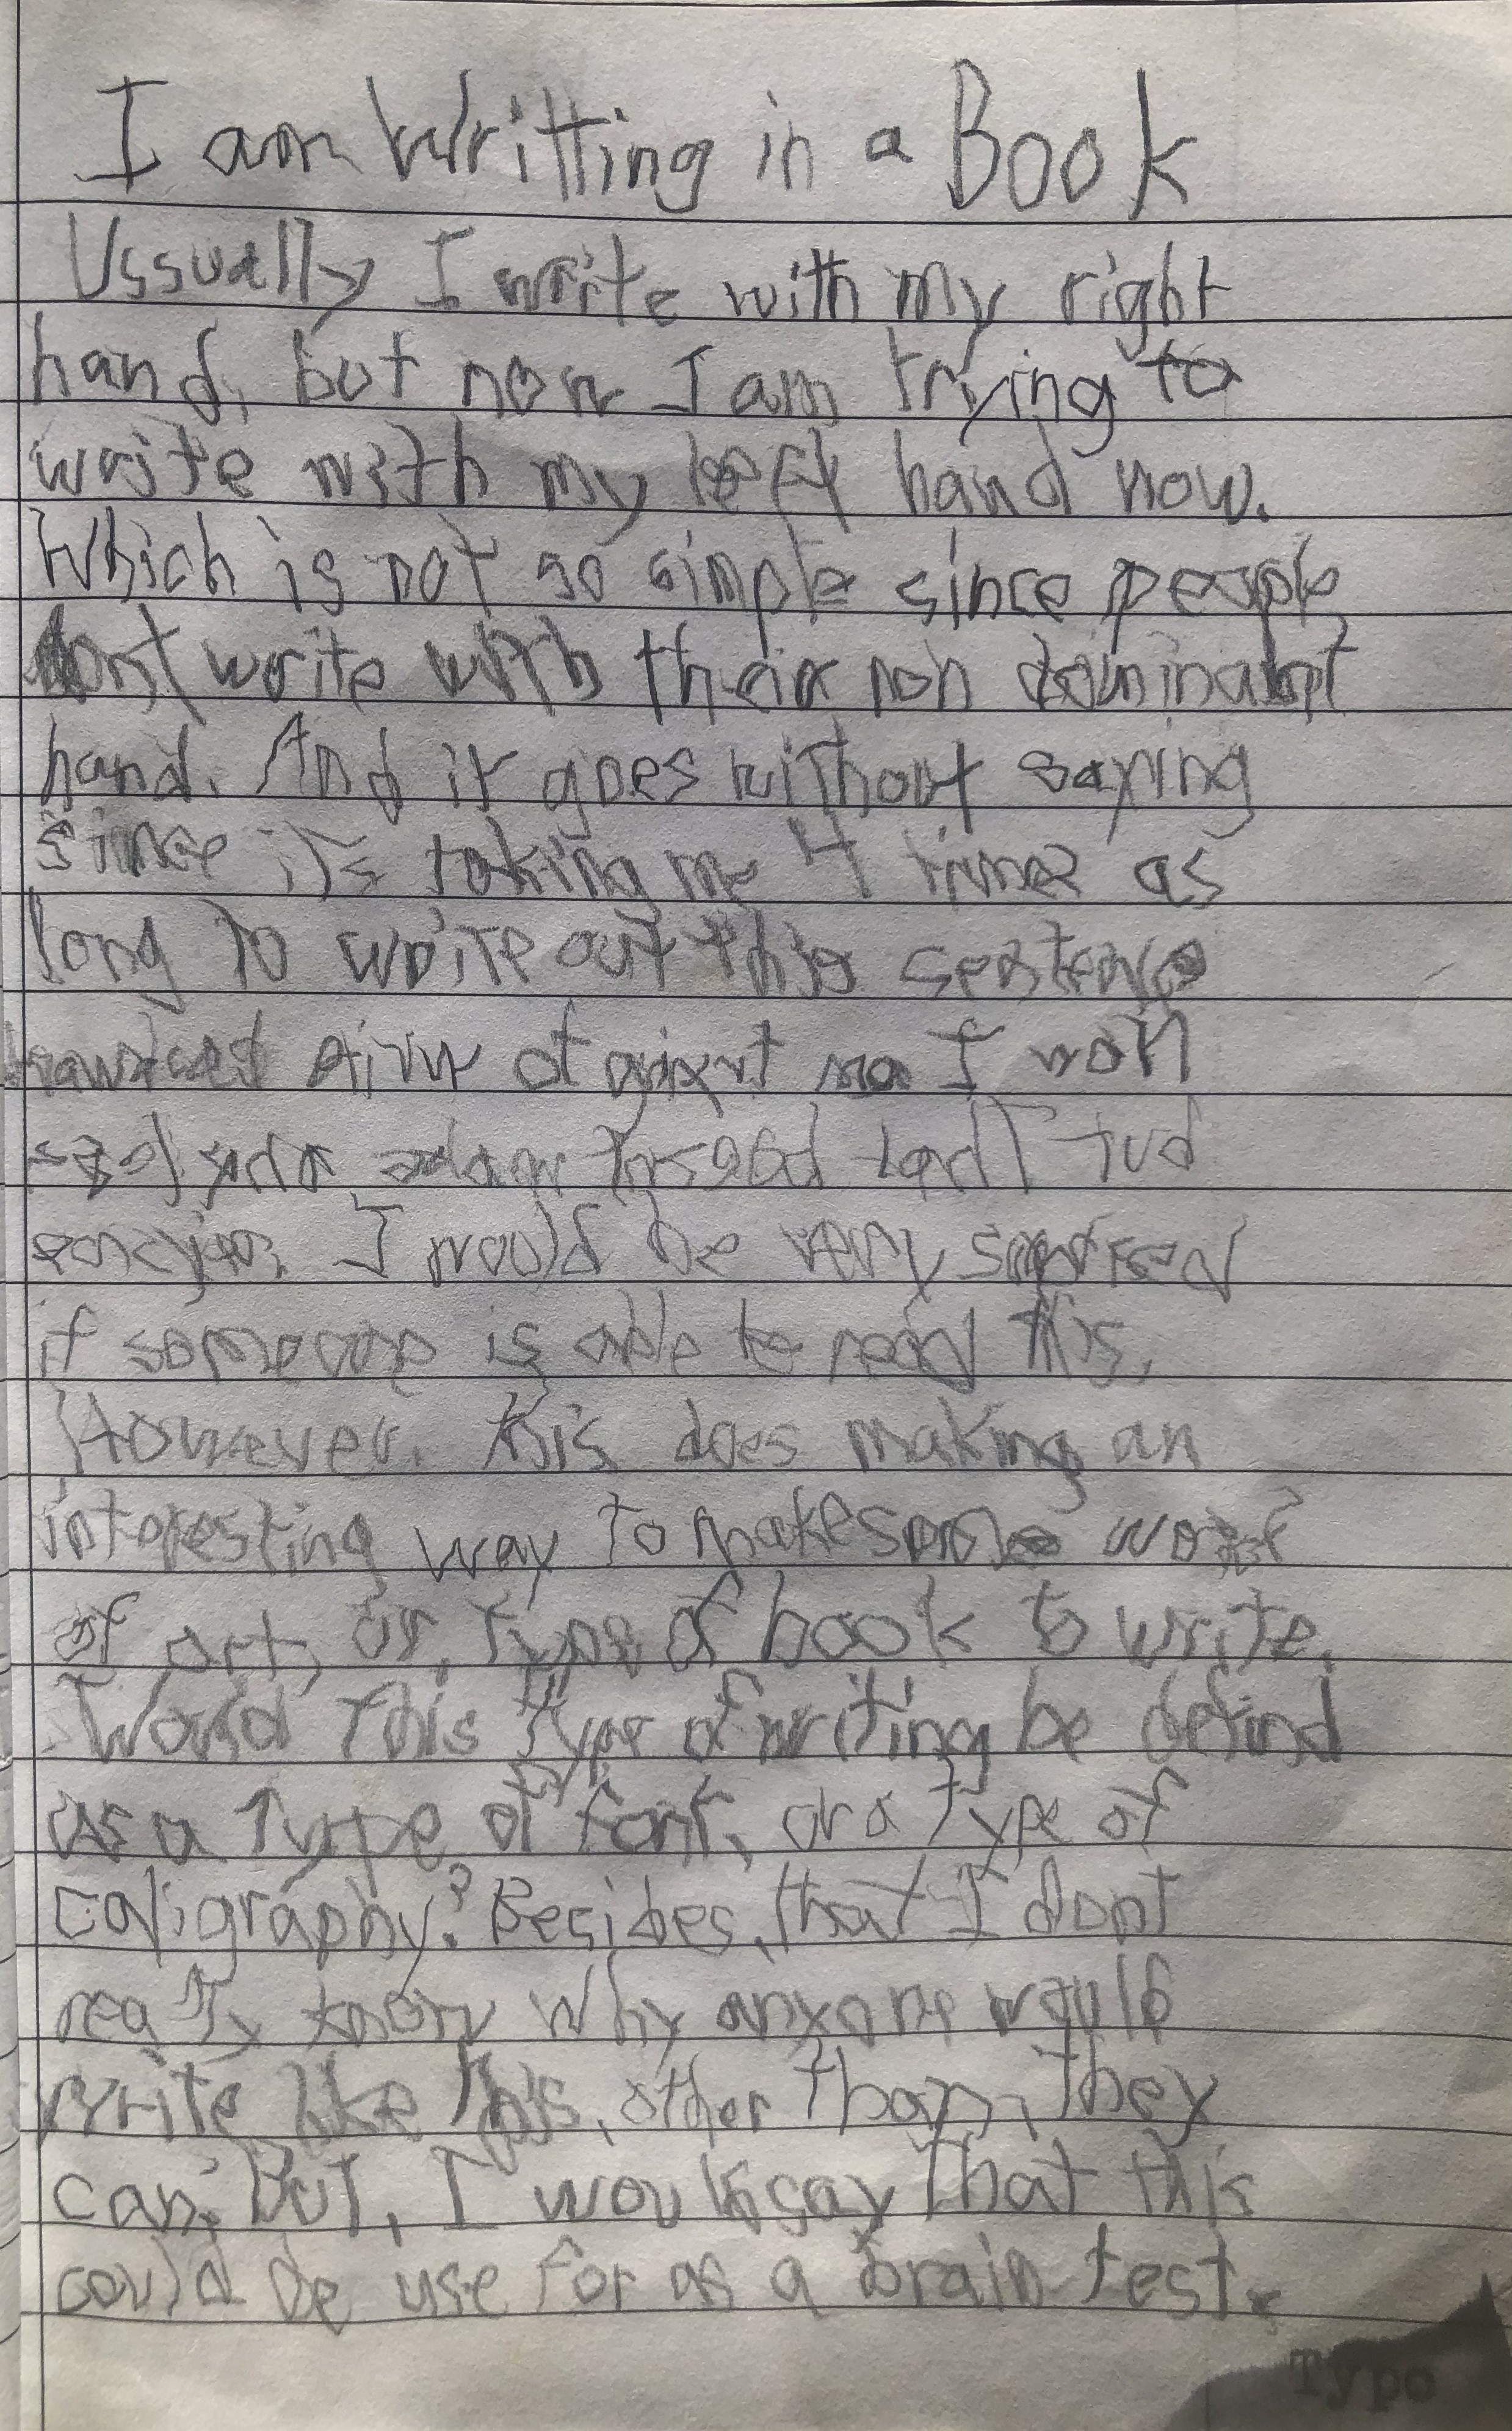 I am Writting in a Book
Ussually I write with my right
hand, but now I am trying to
write with my left hand now.
Which is not so simple since people
dont write with their non dominant
hand. And it goes without saying
since it's taking me 4 times as
long to write out this sentence
I
I would be very suprised
if someone is able to read this.
However. this does making an
interesting way to make some work
of art, or, type of book to write.
Would this type of writing be defind
as a type of font, or a type of
caligraphy? Besides, that I dont
really know why anyone would
write like this, other than, they
can. But, I would say that this
could be use for as a brain test.
Typo